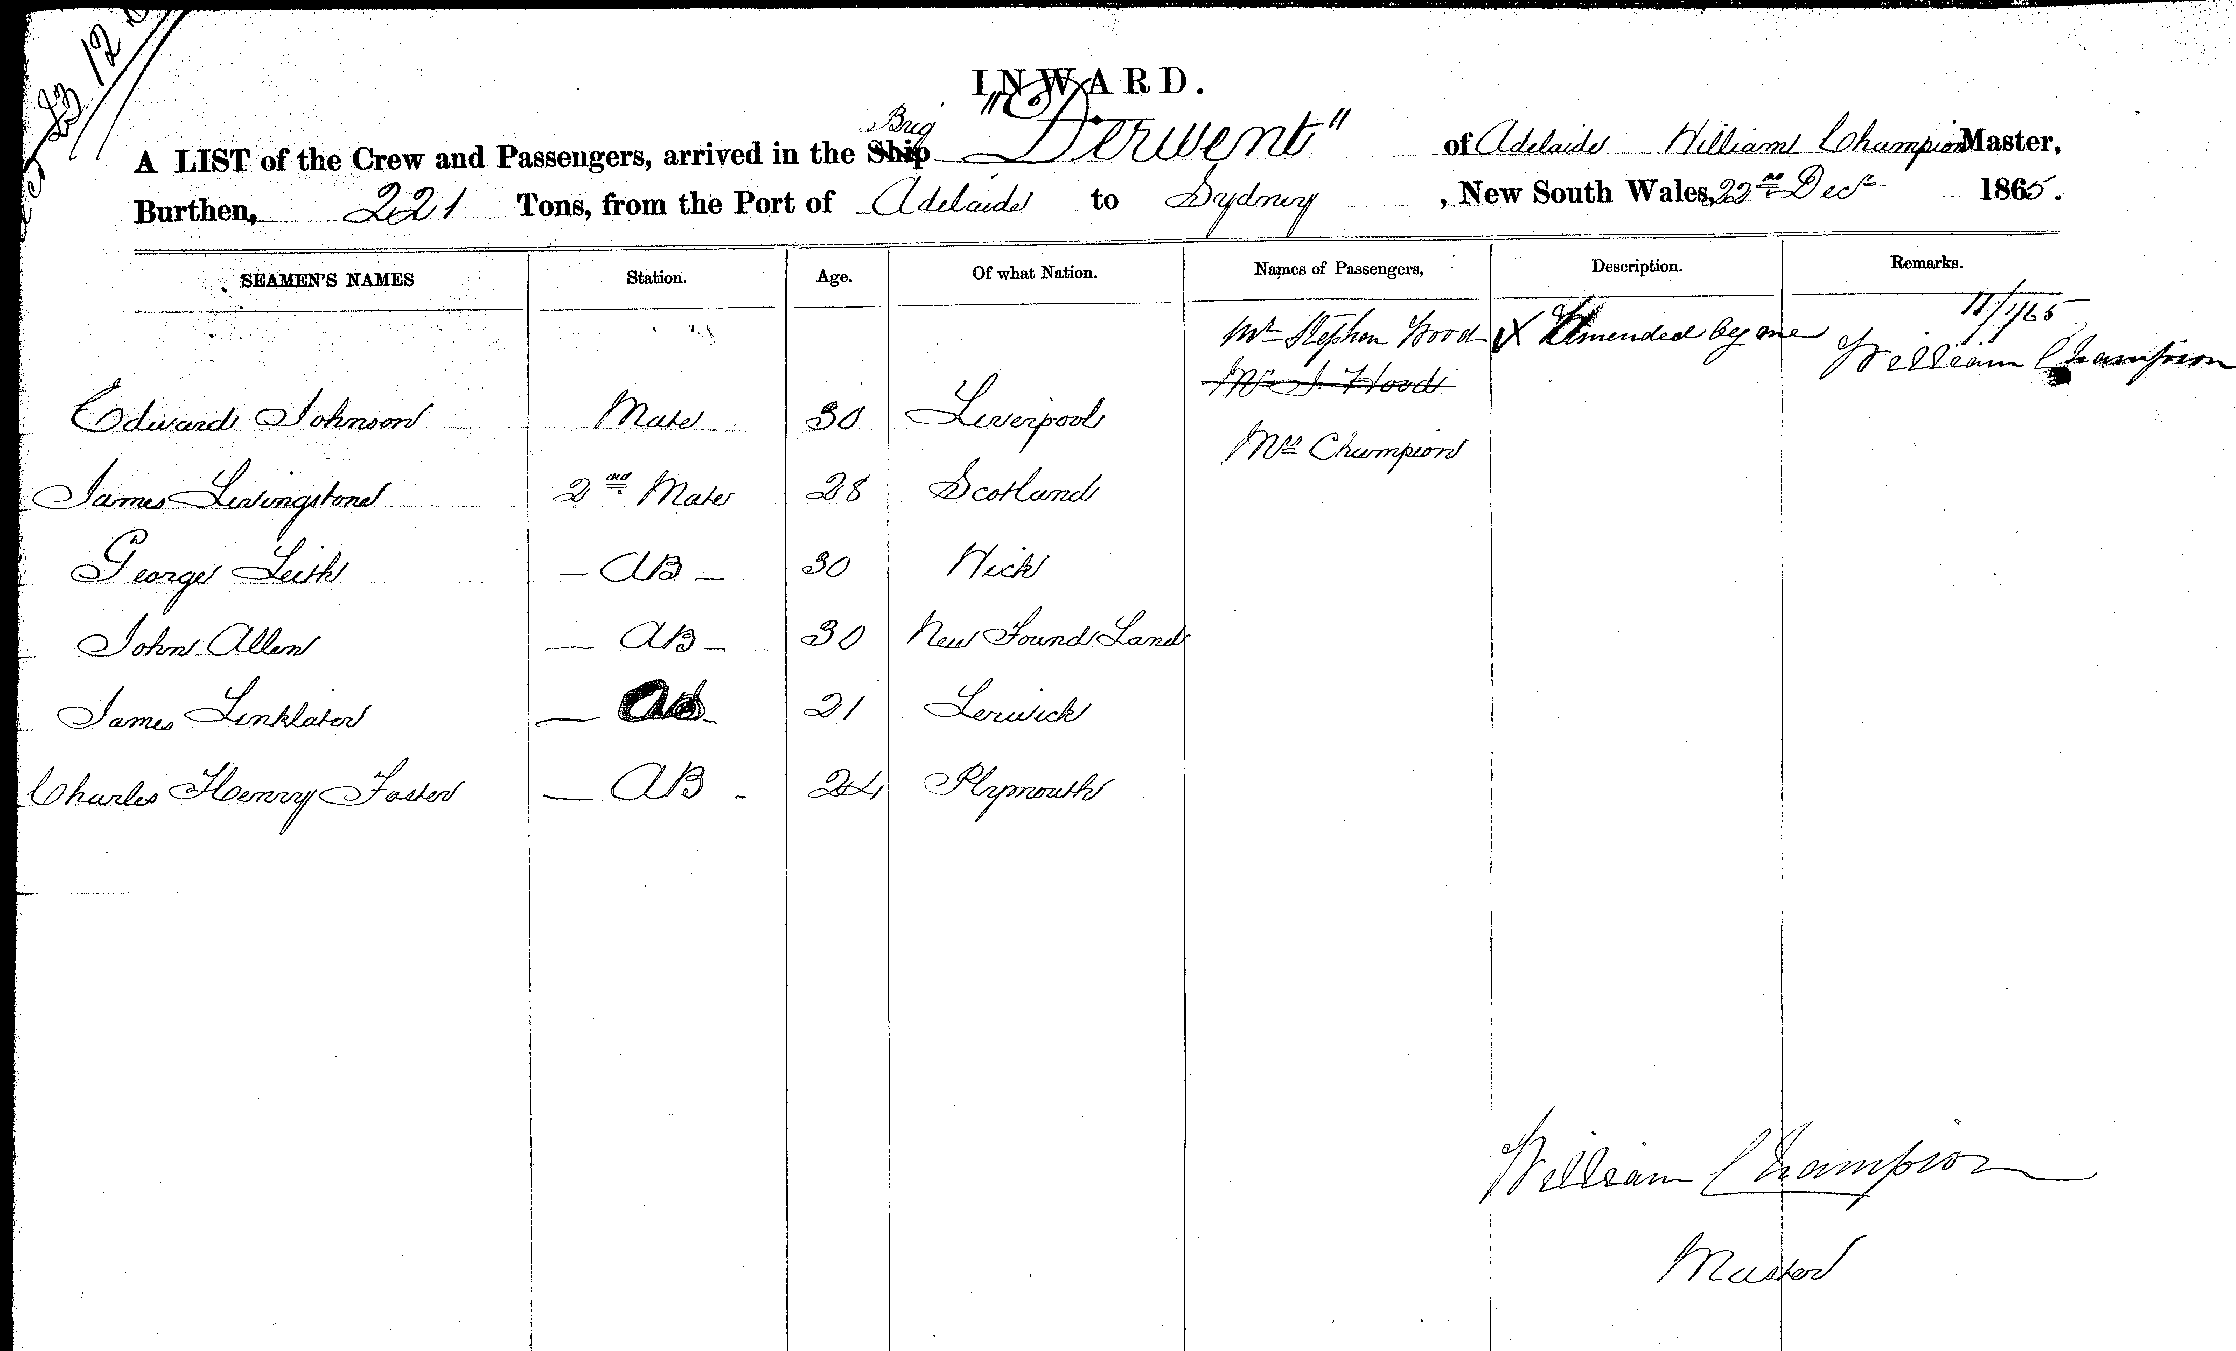 23 12
INWARD.
A LIST of the Crew and Passengers, arrived in the Ship Brig "Derwent" of Adelaide William Champion Master,
Burthen, 221 Tons, from the Port of Adelaide to Sydney, New South Wales, 22nd Decr 1865.
SEAMEN'S NAMES Station. Age. Of what Nation. Names of Passengers, Description. Remarks.
11/1/65
Mr Stephen Wood X Amended by me William Champion
Mr S Wood
Edward Johnson Mate 30 Liverpool
Mrs Champion
James Livingstone 2nd Mate 28 Scotland
George Leith - AB - 30 Wick
John Allen - AB - 30 New Found Land
James Linklater - AB - 21 Lerwick
Charles Henry Foster - AB - 24 Plymouth
William Champion
Master